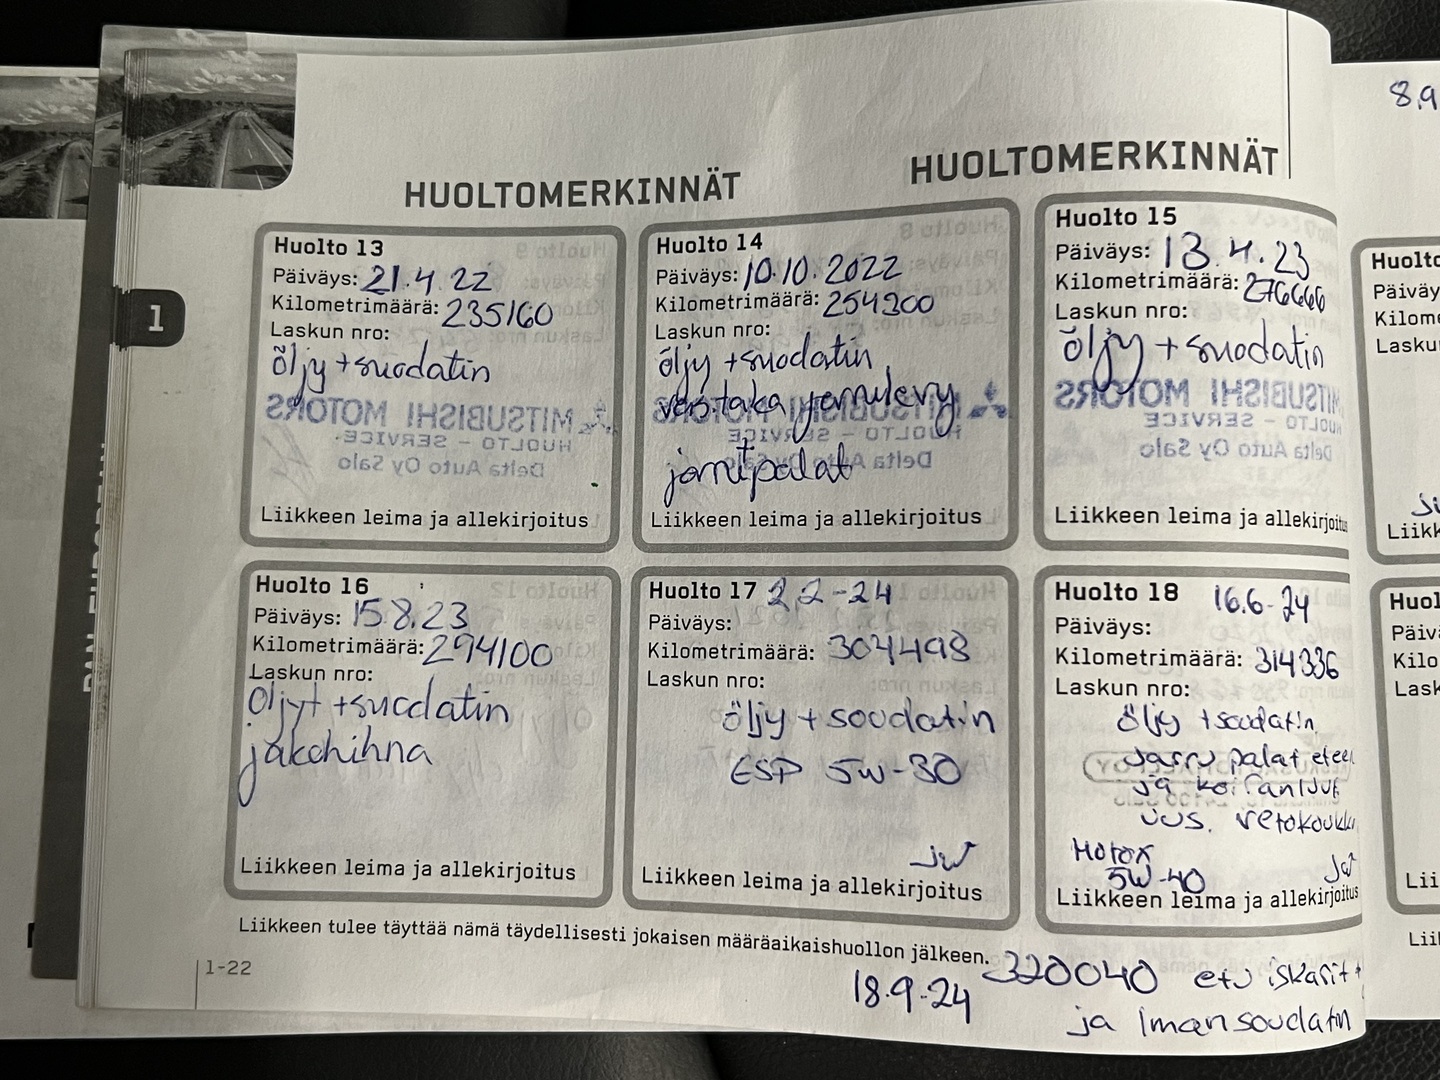 HUOLTOMERKINNÄT
HUOLTOMERKINNÄT
8.9
1
Huolto 13
Päiväys: 21.4.22
Kilometrimäärä: 235160
Laskun nro:
öljy + suodatin
MITSUBISHI MOTORS
HUOLTO - SERVICE
Delta Auto Oy Salo
Liikkeen leima ja allekirjoitus
Huolto 14
Päiväys: 10.10.2022
Kilometrimäärä: 254300
Laskun nro:
öljy + suodatin
taka jarrulevy
+
jarrupalat
MITSUBISHI MOTORS
HUOLTO - SERVICE
Delta Auto Oy Salo
Liikkeen leima ja allekirjoitus
Huolto 15
Päiväys: 13.4.23
Kilometrimäärä: 276666
Laskun nro:
öljy + suodatin
MITSUBISHI MOTORS
HUOLTO - SERVICE
Delta Auto Oy Salo
Liikkeen leima ja allekirjoitus
Huolto 16
Päiväys: 15.8.23
Kilometrimäärä: 294100
Laskun nro:
Öljyt + suodatin
jakohihna
Liikkeen leima ja allekirjoitus
Huolto 17 2.2-24
Päiväys:
Kilometrimäärä: 304498
Laskun nro:
öljy + soudatin
ESP 5W-30
JW
Liikkeen leima ja allekirjoitus
Huolto 18 16.6-24
Päiväys:
Kilometrimäärä: 314336
Laskun nro:
öljy + soudatin
Jarru palat etee
ja koiranluut
uus. vetokoukku
Motox
5W-40
JW
Liikkeen leima ja allekirjoitus
Liikkeen tulee täyttää nämä täydellisesti jokaisen määräaikaishuollon jälkeen.
1-22
18.9-24 320040 etu iskarit +
ja Iman soudatin